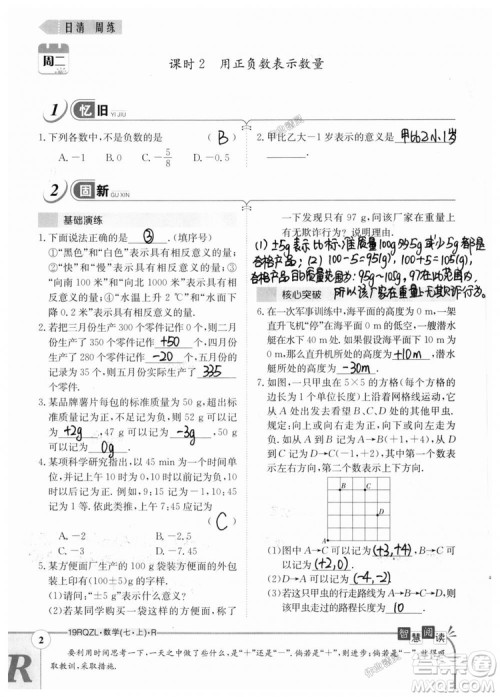 日清 周练
周二
课时2 用正负数表示数量
1 忆旧
YI JIU
1. 下列各数中,不是负数的是 ( B )
A. -1 B. 0 C. -5/8 D. -0.5
2. 甲比乙大-1岁表示的意义是 甲比乙小1岁
2 固新
GU XIN
基础演练
1. 下面说法正确的是 ③ .(填序号)
①“黑色”和“白色”表示具有相反意义的量;
②“快”和“慢”表示具有相反意义的量;
③“向南100米”和“向北1000米”表示具有相反意义的量;
④“水温上升2℃”和“水面下降2米”表示具有相反意义的量.
2. 若把三月份生产300个零件记作0个,则二月份生产了350个零件记作 +50 个,四月份生产了280个零件记作 -20 个,五月份的记录为35个,则五月份生产了 335 个零件.
3. 某品牌薯片每包的标准质量是50 g,超出部分记为正,不足部分记为负,那么52 g可以记为 +2g ,47 g可以记为 -3g ,50 g可以记为 0g .
4. 某项科学研究,以45 min为一个时间单位,并记每天上午10时为0,10时以前记为负,10时以后记为正.例如:9:15记为-1,10:45记为1等等.依此类推,上午7:45应记为 ( C )
A. -2 B. 2
C. -3 D. -7.45
5. 某方便面厂生产的100 g袋装方便面外包装印有(100±5)g的字样.
(1)“±5”表示什么意义?
(2)某同学购买一袋这样的方便面,称了一下发现只有97 g,问该厂家在重量上有无欺诈行为?说明理由.
(1)±5g表示比标准质量100g多5g或少5g的都是合格产品;(2)100-5=95(g),100+5=105(g),合格产品的质量范围为:95g~105g,97在此范围内,所以该厂家在重量上无欺诈行为.
核心突破
6. 在一次军事训练中,海平面的高度为0 m,一架直升飞机“停”在海平面的上方10 m处,一艘潜水艇在水下30 m处.如果直升飞机的高度记为 +10m ,潜水艇的高度记为 -30m .
7. 如图,一只甲虫在5×5的方格(每个方格的边长为1个单位长度)上沿着网格线运动,它从A处出发去看望B,C,D处的其他甲虫.规定:向上、向右走为正,向下、向左走为负.例如:从A到B记为A→B(+1,+4),其中第一个数表示左右方向,第二个数表示上下方向.
(1)图中A→C可以记为 (+3,+4) ,B→C可以记为 (+2,0) .
(2)D→A可以记为 (-4,-2) .
2
19RQZL·数学(七·上)·R
智慧阅读
要利用时间思考一下,一天之中做了些什么,是“+”还是“-”,倘若是“+”,则进步;倘若是“-”,就得吸取教训,采取措施.